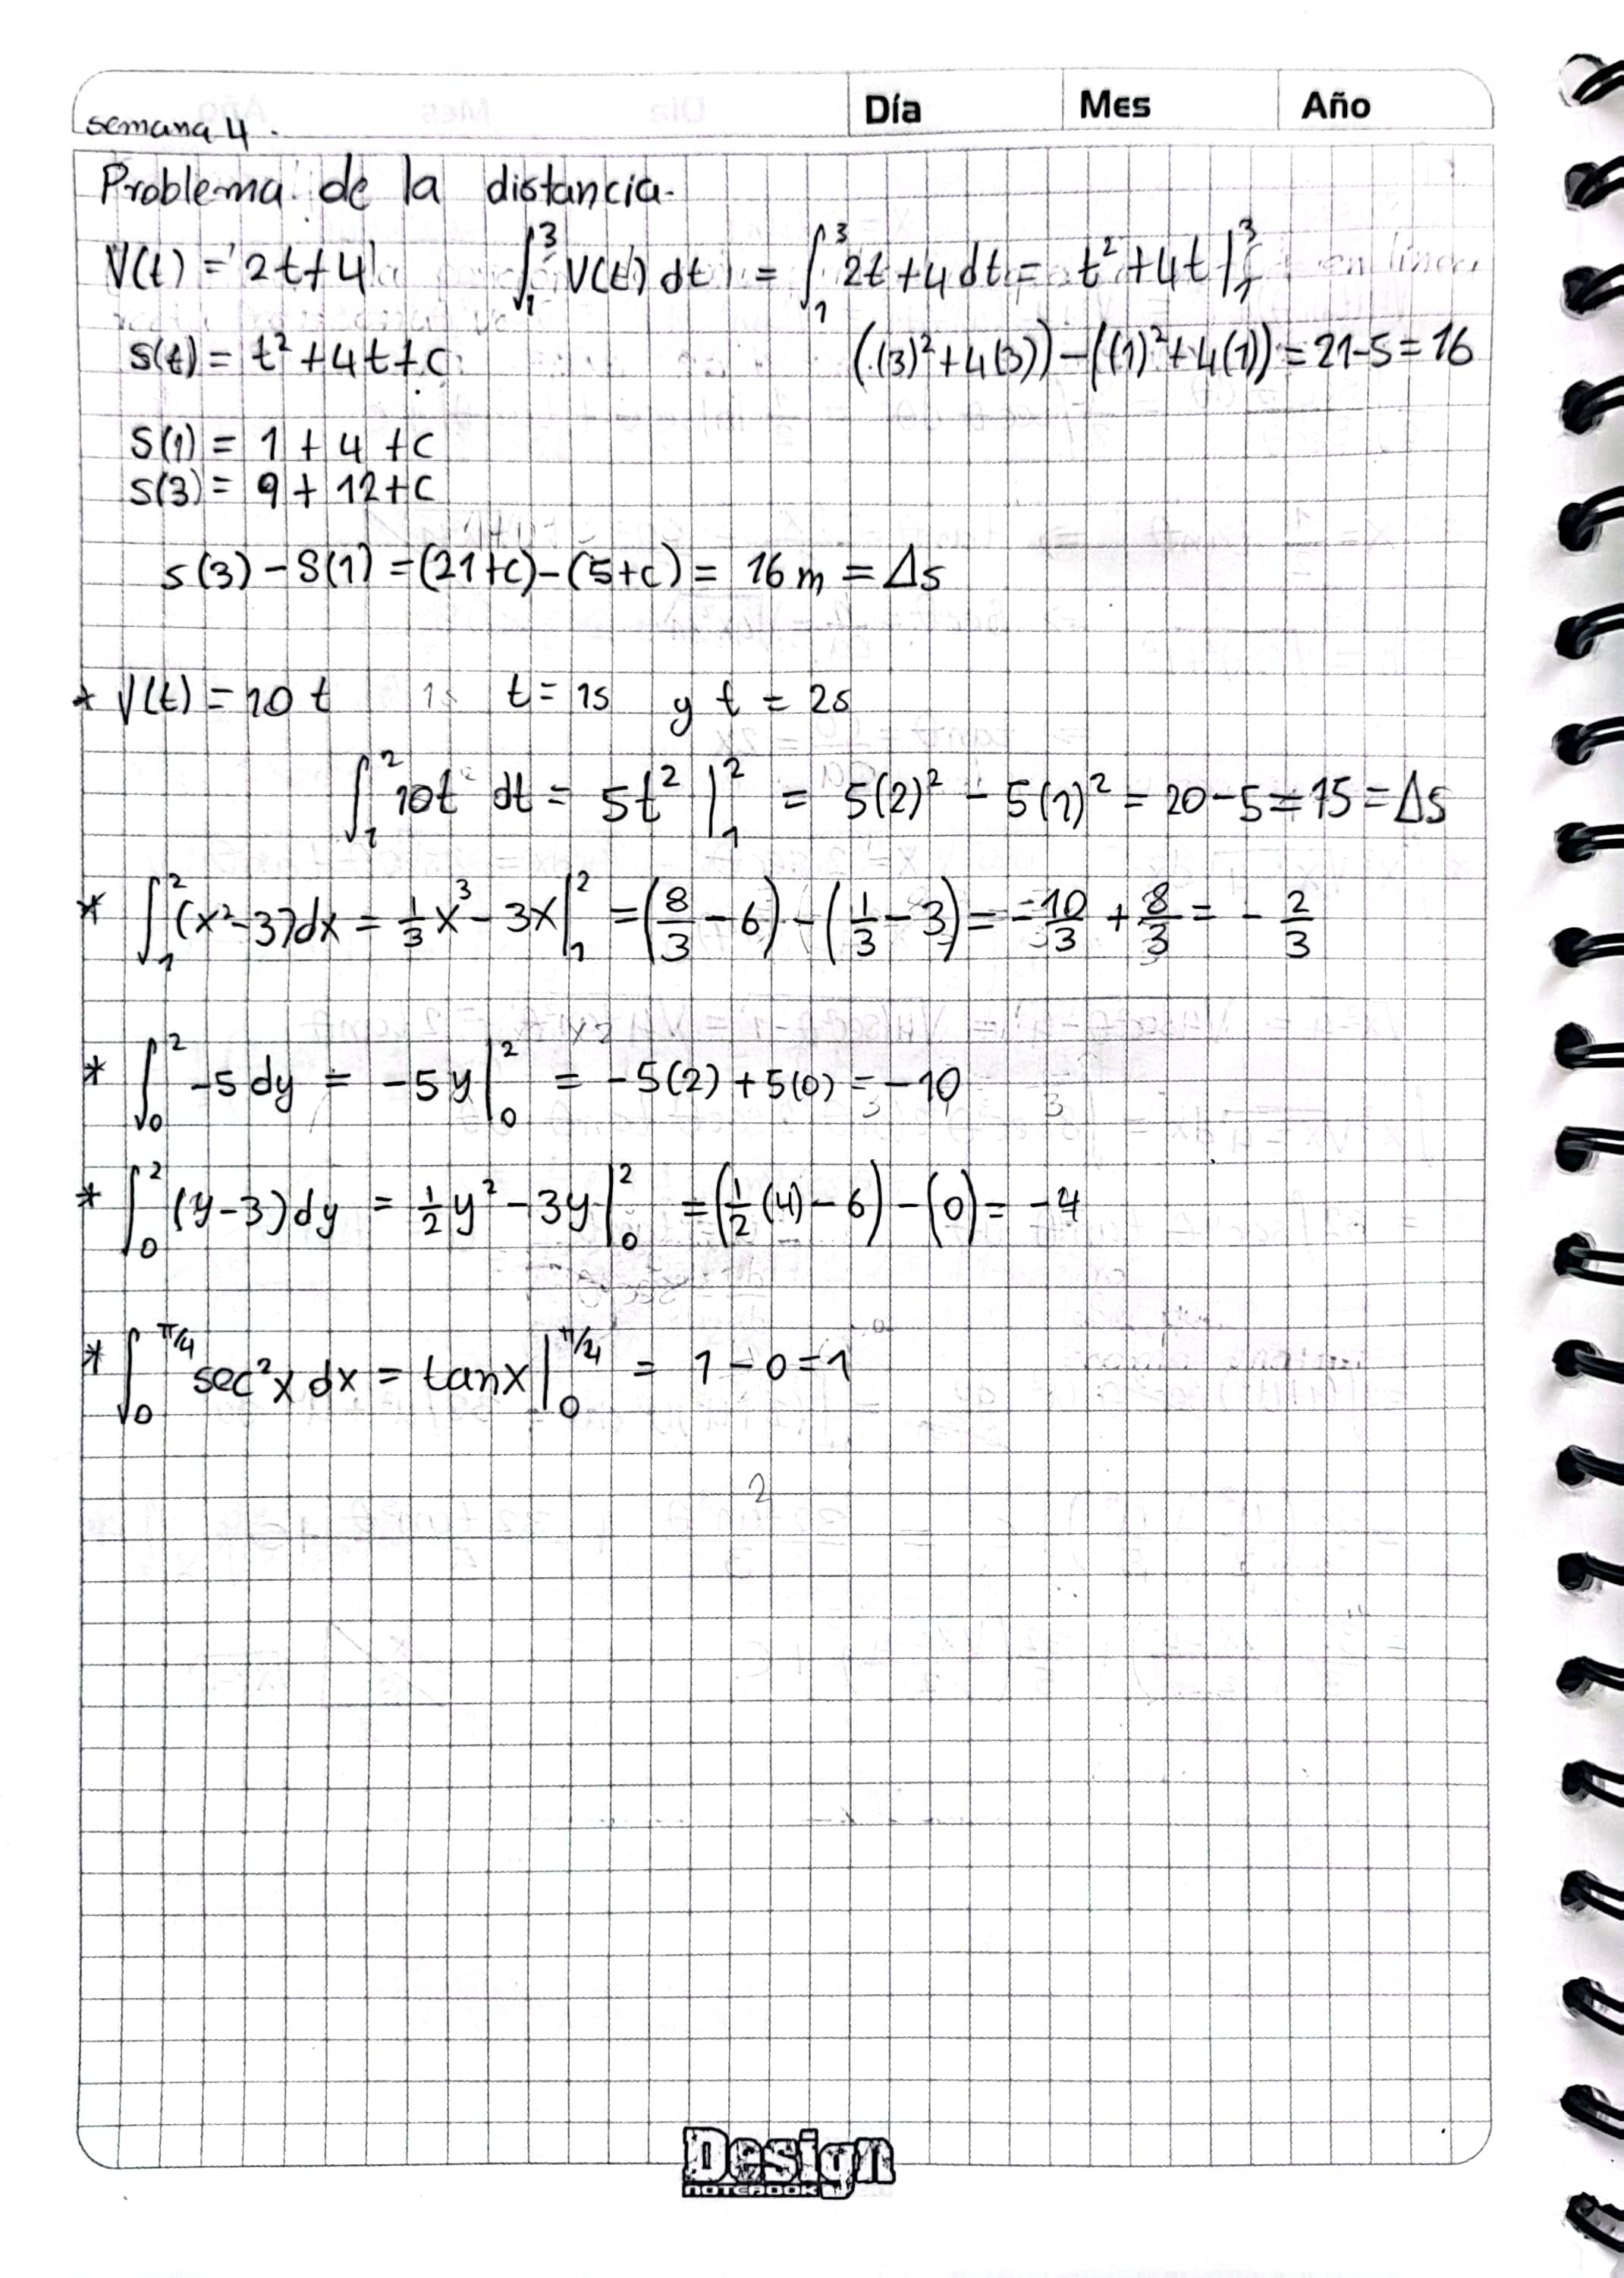 Día Mes Año
semana 4.
Problema de la distancia.
V(t) = 2t+4 ∫₁³ V(t) dt = ∫₁³ 2t+4 dt = t²+4t |₁³
S(t) = t²+4t+c ((3)²+4(3))-((1)²+4(1)) = 21-5 = 16
S(1) = 1+4+c
S(3) = 9+12+c
s(3)-S(1) = (21+c)-(5+c) = 16m = Δs
* V(t) = 10t t = 1s y t = 2s
∫₁² 10t dt = 5t² |₁² = 5(2)² - 5(1)² = 20-5 = 15 = Δs
* ∫₁² (x²-3)dx = 1/3 x³ - 3x |₁² = (8/3 - 6) - (1/3 - 3) = -10/3 + 8/3 = -2/3
* ∫₀² -5 dy = -5y |₀² = -5(2)+5(0) = -10
* ∫₀² (y-3)dy = 1/2 y² - 3y |₀² = (1/2 (4) - 6) - (0) = -4
* ∫₀^π/4 sec²x dx = tanx |₀^π/4 = 1-0 = 1
2
Design
NOTEBOOK